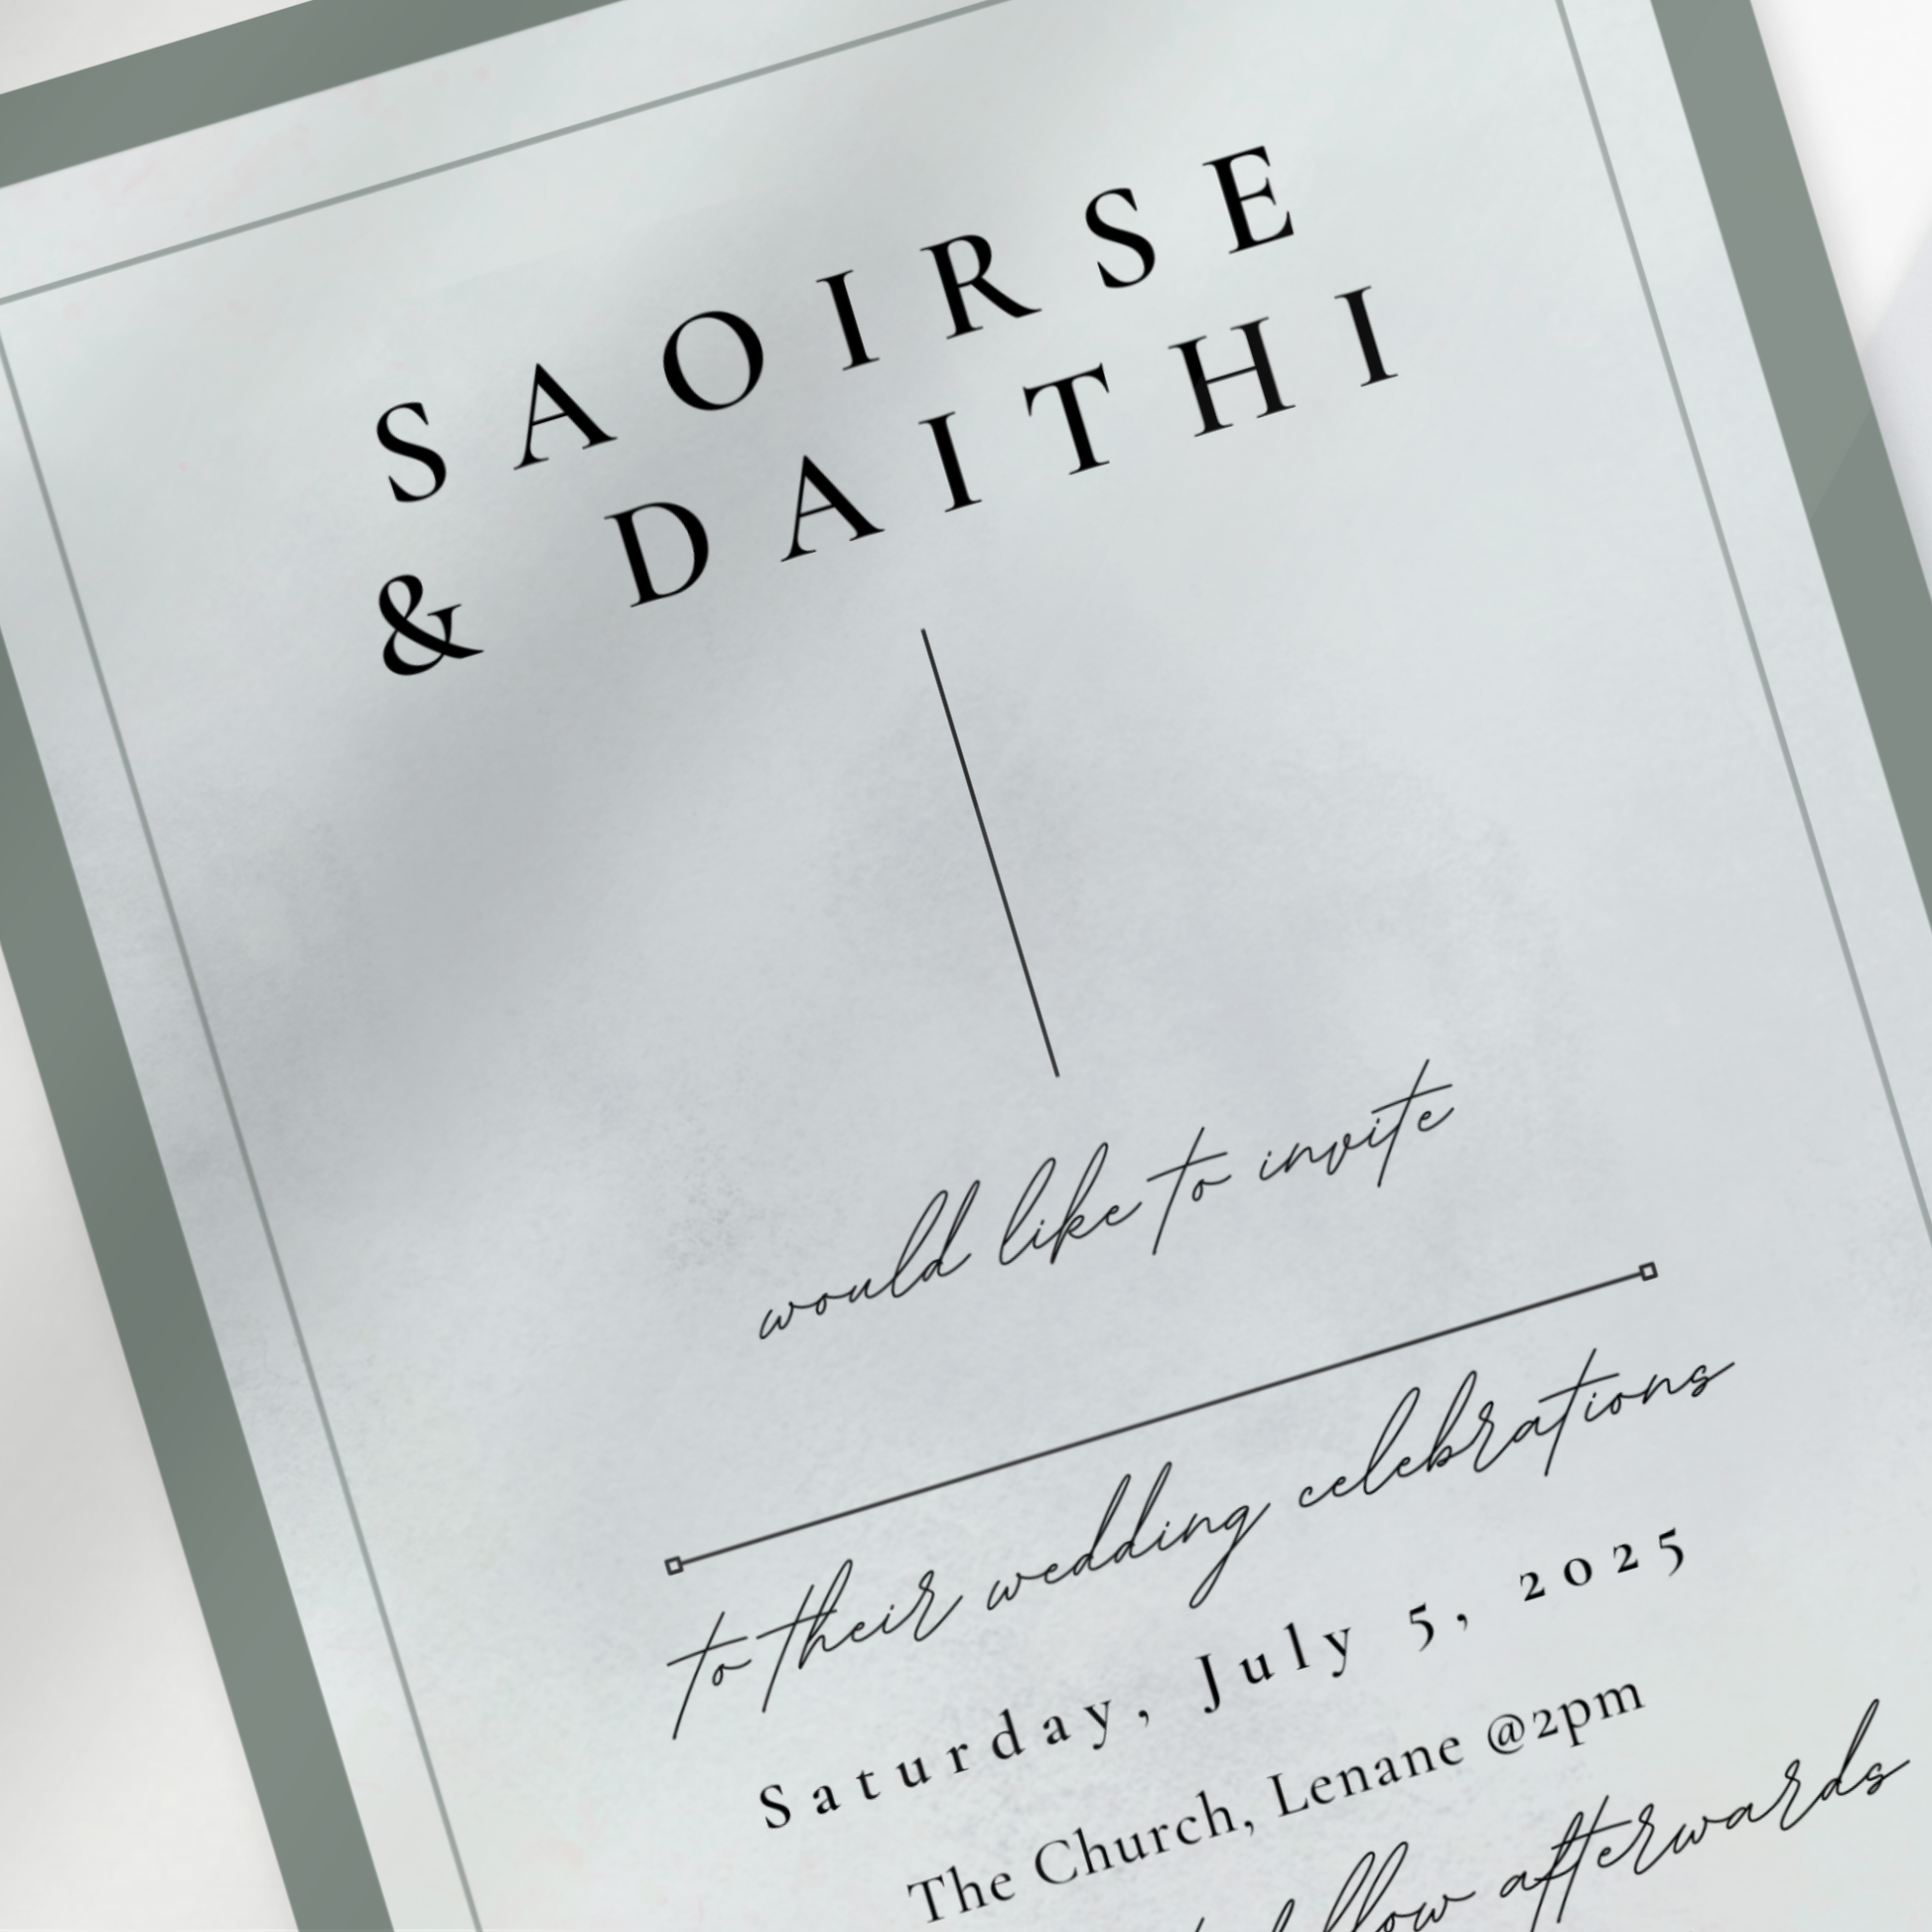 SAOIRSE
& DAITHI
would like to invite
to their wedding celebrations
Saturday, July 5, 2025
The Church, Lenane @2pm
afterwards